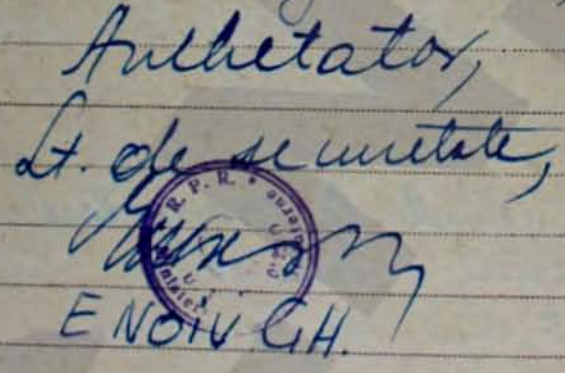 Anchetator,
Lt. de securitate,
ENOIU GH.
R. P. R. *